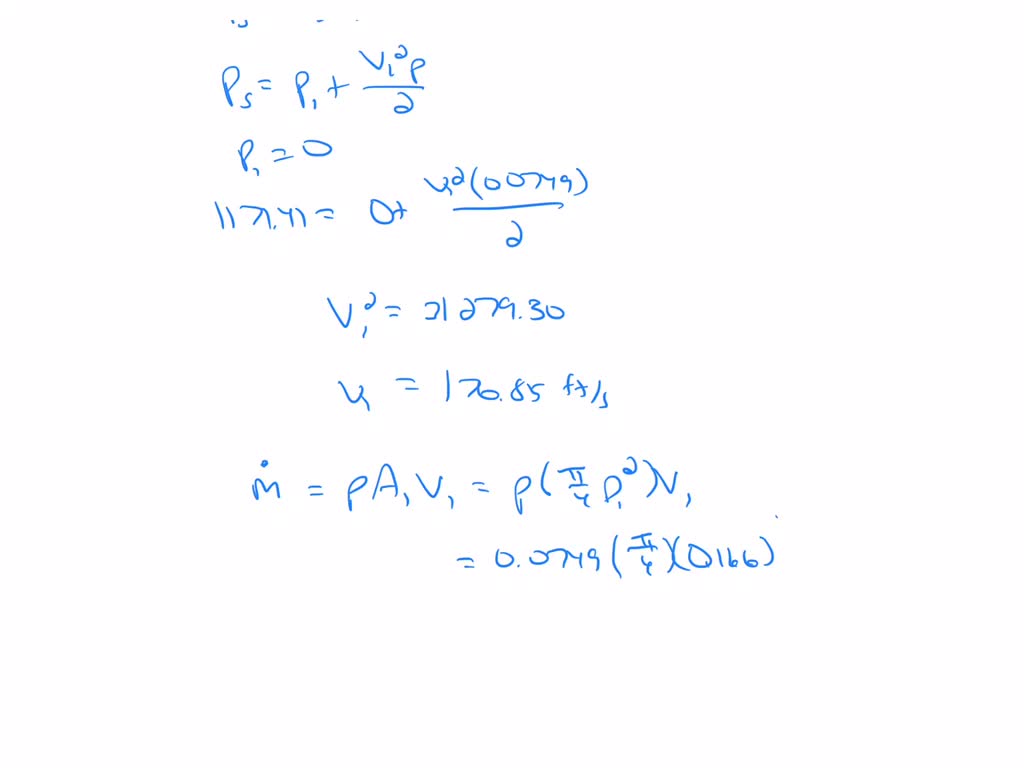 Ps = P₁ + V₁²ρ/2
P₁ = 0
1171.41 = 0+ V₁²(00749)/2
V₁² = 31279.30
V₁ = 170.85 ft/s
ṁ = ρA₁V₁ = ρ(π/4 D₁²)V₁
= 0.0749(π/4)(0166)